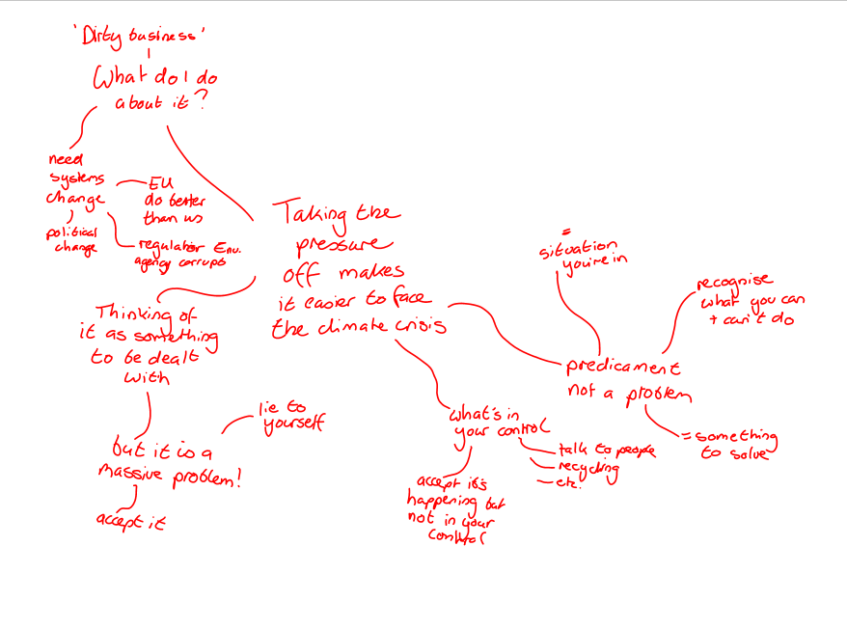 'Dirty business'
What do I do
about it?
need
systems
change
political
change
EU
do better
than us
regulator Env.
agency corrupt
Taking the
pressure
off makes
it easier to face
the climate crisis
Thinking of
it as something
to be dealt
with
but it is a
massive problem!
lie to
yourself
accept it
what's in
your control
talk to people
recycling
etc.
accept it's
happening but
not in your
control
=
situation
you're in
predicament
not a problem
recognise
what you can
+ can't do
= something
to solve